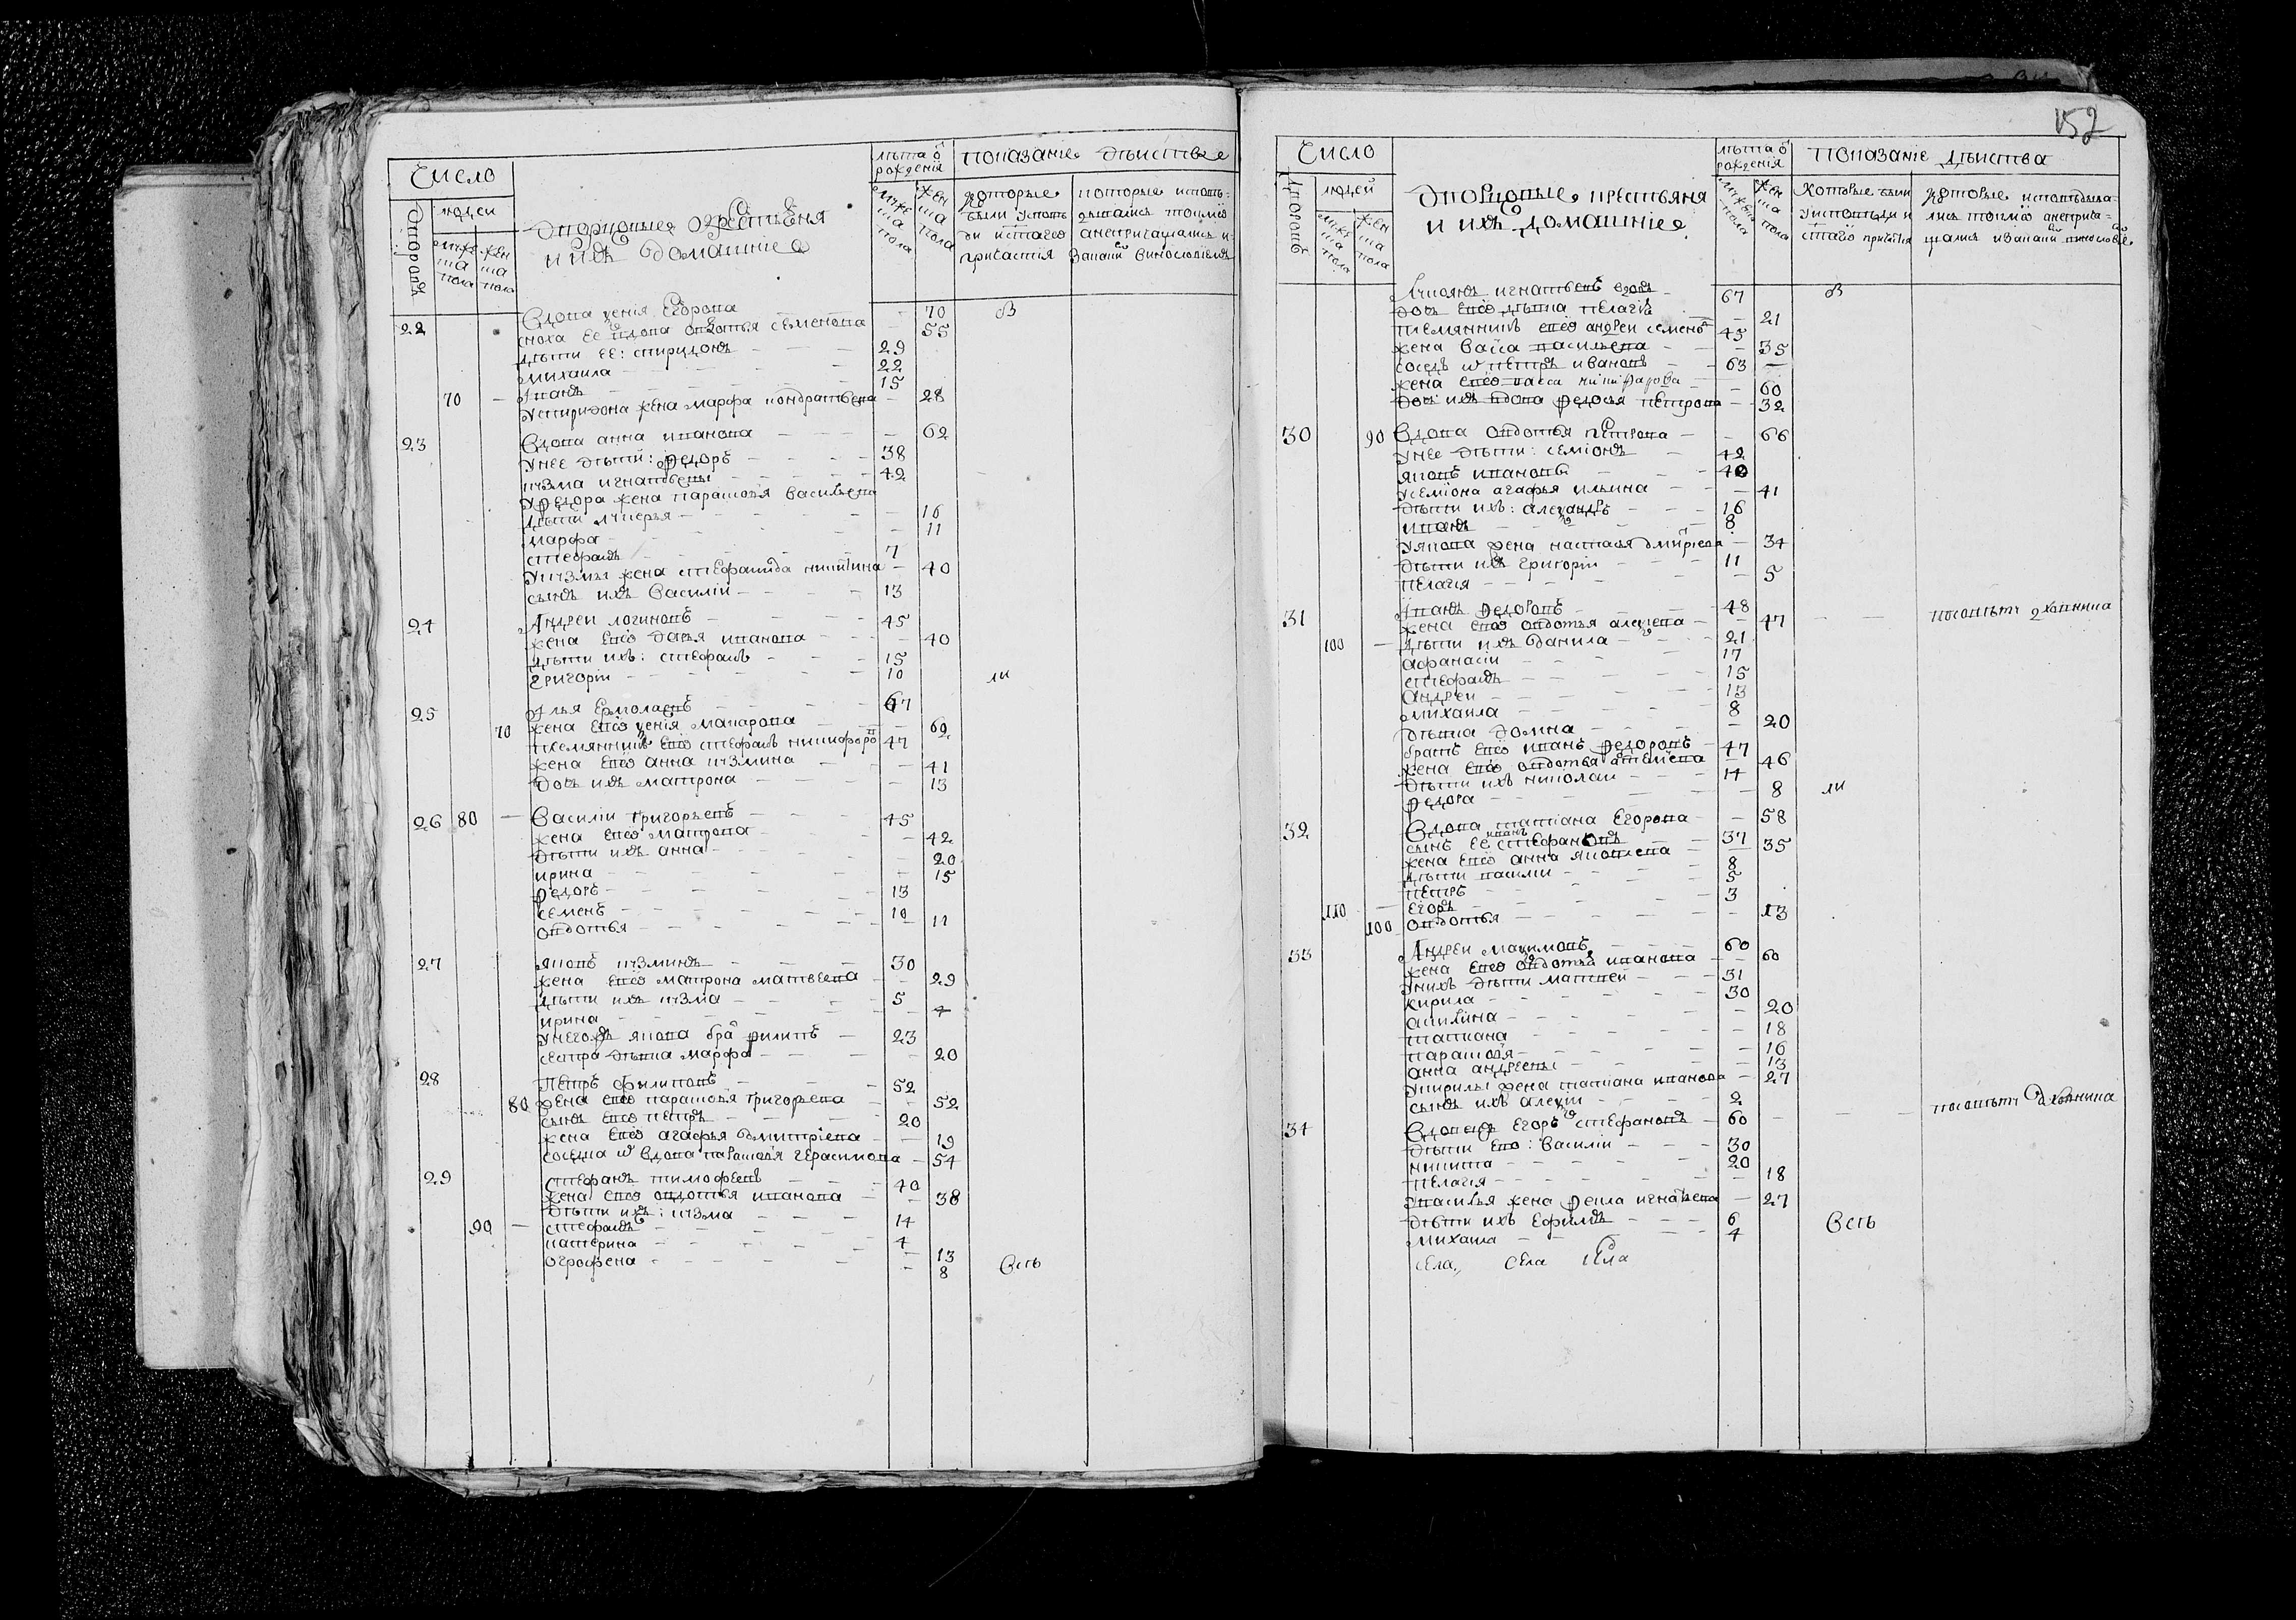 Число
дворовъ
людей
мужеска пола
женска пола
Дворцовые крестьяня
и ихъ домашние
лѣта ѿ рождения
мужеска пола
женска пола
Показание действъ
которые были у исповеди и святаго причастия
которые исповедались токмо а не причащались и за какимъ винословиемъ
22 Вдова ѯения Егорова - 70 В
сноха ее вдова овдотья семенова - 55
дѣти ее: спиридонъ - 29
михаила - 22
70 - Иванъ - 15
У спиридона жена марфа кондратьева - 28
23 Вдова анна иванова - 62
У нее дѣти: федоръ - 38
кузма игнатьевы - 42
У федора жена парасковья василева
дѣти лукерья - 16
марфа - 11
стефанъ - 7
У кузмы жена стефанида никитина - 40
сынъ ихъ Василий - 13
24 Андреи логиновъ - 45
жена ево дарья иванова - 40
дѣти ихъ: стефанъ - 15
григории - 10 ли
25 Илья Ермолаевъ - 67
70 жена ево ѯения макарова - 69
племянникъ ево стефанъ никифоровъ 47
жена ево анна кузмина - 41
дочь ихъ матрона - 13
26 80 - Василии григорьевъ - 45
жена ево матрона - 42
дѣти ихъ анна - 20
ирина - 15
федоръ - 13
семенъ - 10
овдотья - 11
27 яковъ кузминъ - 30
жена ево матрона матвеева - 29
дѣти ихъ кузма - 5
ирина - 4
У негожъ якова братъ филипъ - 23
сестра дѣвка марфа - 20
28 Петръ филиповъ - 52
80 жена ево парасковья григорьева - 52
сынъ ево петръ - 20
жена ево агафья дмитриева - 19
соседка ихъ вдова парасковья герасимова - 54
29 стефанъ тимофеевъ - 40
жена ево овдотья иванова - 38
дѣти ихъ: кузма - 14
90 - стефанъ - 4
катерина - 13
огрофена - 8 Всъ
152
Число
дворовъ
людей
мужеска пола
женска пола
Дворцовые крестьяня
и ихъ домашние
лѣта ѿ рождения
мужеска пола
женска пола
Показание дѣиства
Которые были у исповеди и святаго причастия
которые исповедывались токмо а не причащались и за какимъ винословиемъ
Лукоянъ игнатьевъ вдовъ - 67 В
дочь ево дѣвка пелагѣя - 21
племянникъ ево андреи семеновъ 45
жена Васса василева - 35
соседъ ихъ петръ ивановъ - 63
жена ево васса никифарова - 60
дочь ихъ вдова федосья петрова - 32
30 90 Вдова овдотья петрова - 66
У нее дѣти: семионъ - 42
яковъ ивановы - 40
У семиона агафья ильина - 41
дѣти ихъ: алеѯандръ - 16
иванъ - 8
У якова жена настасья дмитриева - 34
дѣти ихъ григории - 11
пелагия - 5
31 Иванъ федоровъ - 48
жена ево овдотья алеѯева - 47
100 - дѣти ихъ данила - 21
афанасии - 17
стефанъ - 15
Андреи - 13
михаила - 8
дѣвка домна - 20
братъ ево иванъ федоровъ - 47
жена ево овдотья - 46
дѣти ихъ николаи - 14
федора - 8 ли
32 Вдова татиана Егорова - 58
сынъ ее иванъ стефановъ - 37
жена ево анна яковлева - 35
дѣти василии - 8
петръ - 5
110 - Егоръ - 3
100 овдотья - 13
33 Андреи маѯимовъ - 60
жена ево овдотья иванова - 60
У нихъ дѣти матвей - 31
кирила - 30
акилина - 20
татиана - 18
парасковя - 16
анна андреевы - 13
У кирилы жена татиана иванова - 27
сынъ ихъ алеѯии - 2
34 Вдовецъ Егоръ стефановъ - 60
дѣти ево: Василии - 30
никита - 20
пелагия - 18
У василья жена фекла игнатьева - 27
дѣти ихъ Ефимъ - 6
михаила - 4 Всъ
села, Села села